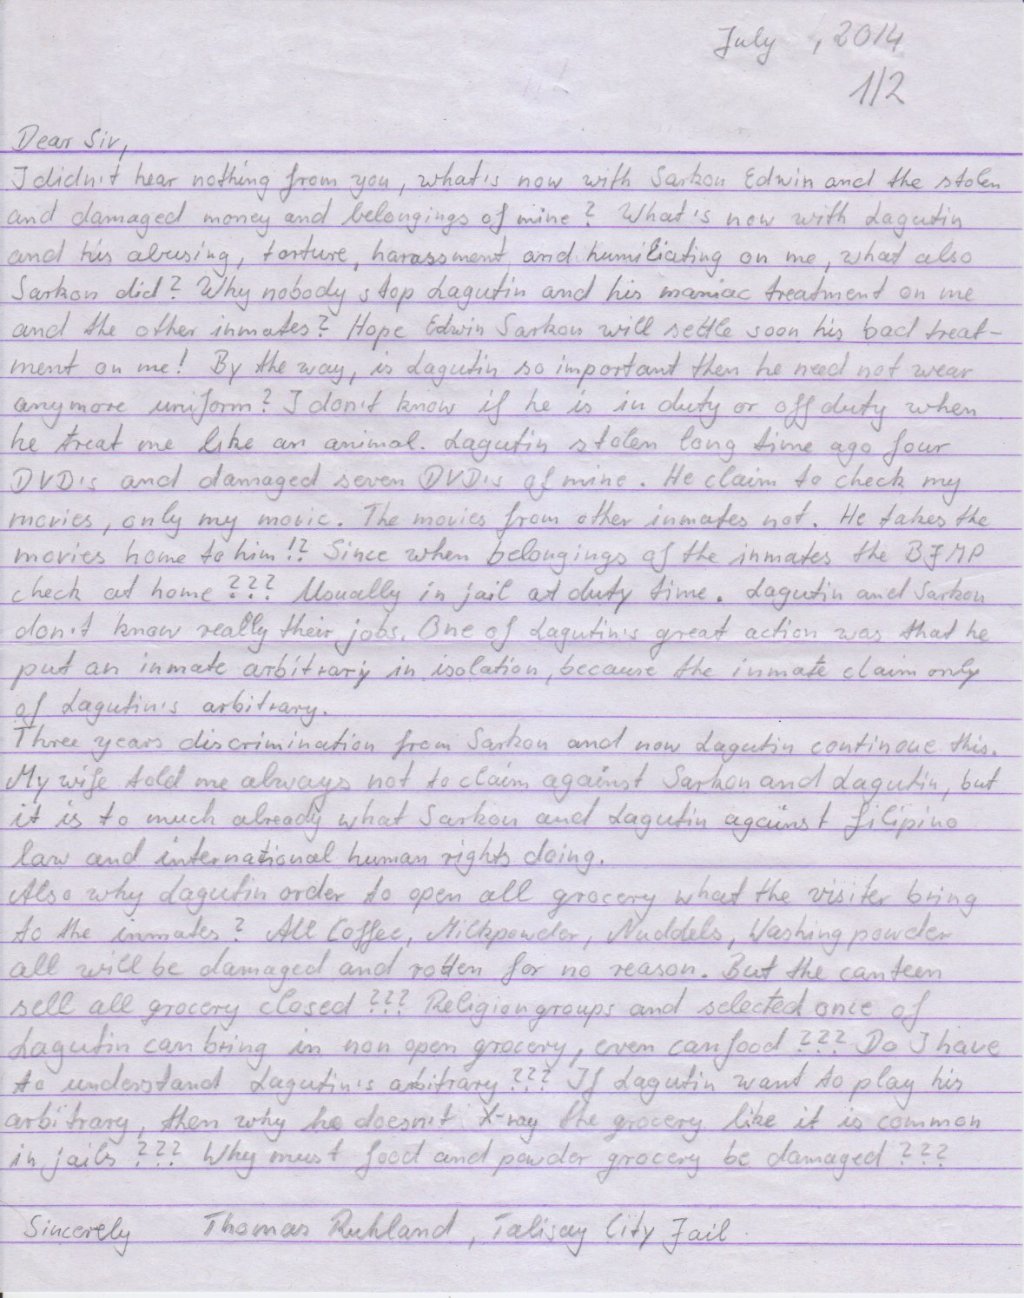 July , 2014
1/2
Dear Sir,
I didn't hear nothing from you, what's now with Sarkon Edwin and the stolen
and damaged money and belongings of mine? What's now with Lagutin
and his abusing, torture, harassment and humiliating on me, what also
Sarkon did? Why nobody stop Lagutin and his maniac treatment on me
and the other inmates? Hope Edwin Sarkon will settle soon his bad treat-
ment on me! By the way, is Lagutin so important then he need not wear
anymore uniform? I don't know if he is in duty or off duty when
he treat me like an animal. Lagutin stolen long time ago four
DVD's and damaged seven DVD's of mine. He claim to check my
movies, only my movie. The movies from other inmates not. He takes the
movies home to him!? Since when belongings of the inmates the BJMP
check at home??? Usually in jail at duty time. Lagutin and Sarkon
don't know really their jobs. One of Lagutin's great action was that he
put an inmate arbitrary in isolation, because the inmate claim only
of Lagutin's arbitrary.
Three years discrimination from Sarkon and now Lagutin continoue this.
My wife told me always not to claim against Sarkon and Lagutin, but
it is to much already what Sarkon and Lagutin against filipino
law and international human rights doing.
Also why Lagutin order to open all grocery what the visiter bring
to the inmates? All Coffee, Milkpowder, Nuddels, Washing powder
all will be damaged and rotten for no reason. But the canteen
sell all grocery closed??? Religion groups and selected once of
Lagutin can bring in non open grocery, even canfood??? Do I have
to understand Lagutin's arbitrary??? If Lagutin want to play his
arbitrary, then why he doesn't X-ray the grocery like it is common
in jails??? Why must food and powder grocery be damaged???
Sincerely Thomas Ruhland, Talisay City Jail